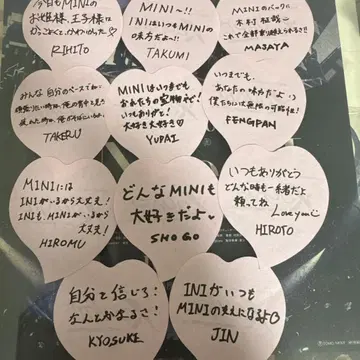 今日もMINIの
お姫様、王子様は
かっこよくて、かわいかった♡
RIHITO
MINI〜!!
INIはいつもMINIの
味方だよ〜!!
TAKUMI
MINIのバックに
木村柾哉…
これで全部乗り越えられるさ!!
MASAYA
みんな自分のペースで
TAKERU
MINIはいつまでも
おれたちの宝物です!
いつもありがと!
大好き大好き♡
YUDAI
いつまでも、
あなたの味方だよ。
僕たちには無限の可能性!
FENGFAN
MINIには
INIがいるから大丈夫!
INIも、MINIがいるから
大丈夫!
HIROMU
どんなMINIも
大好きだよ
SHOGO
いつもありがとう
どんな時も一緒だよ
頼ってね
Love you
HIROTO
自分を信じろ!
なんとかなるさ!
KYOSUKE
INIがいつも
MINIの支えになるよ
JIN